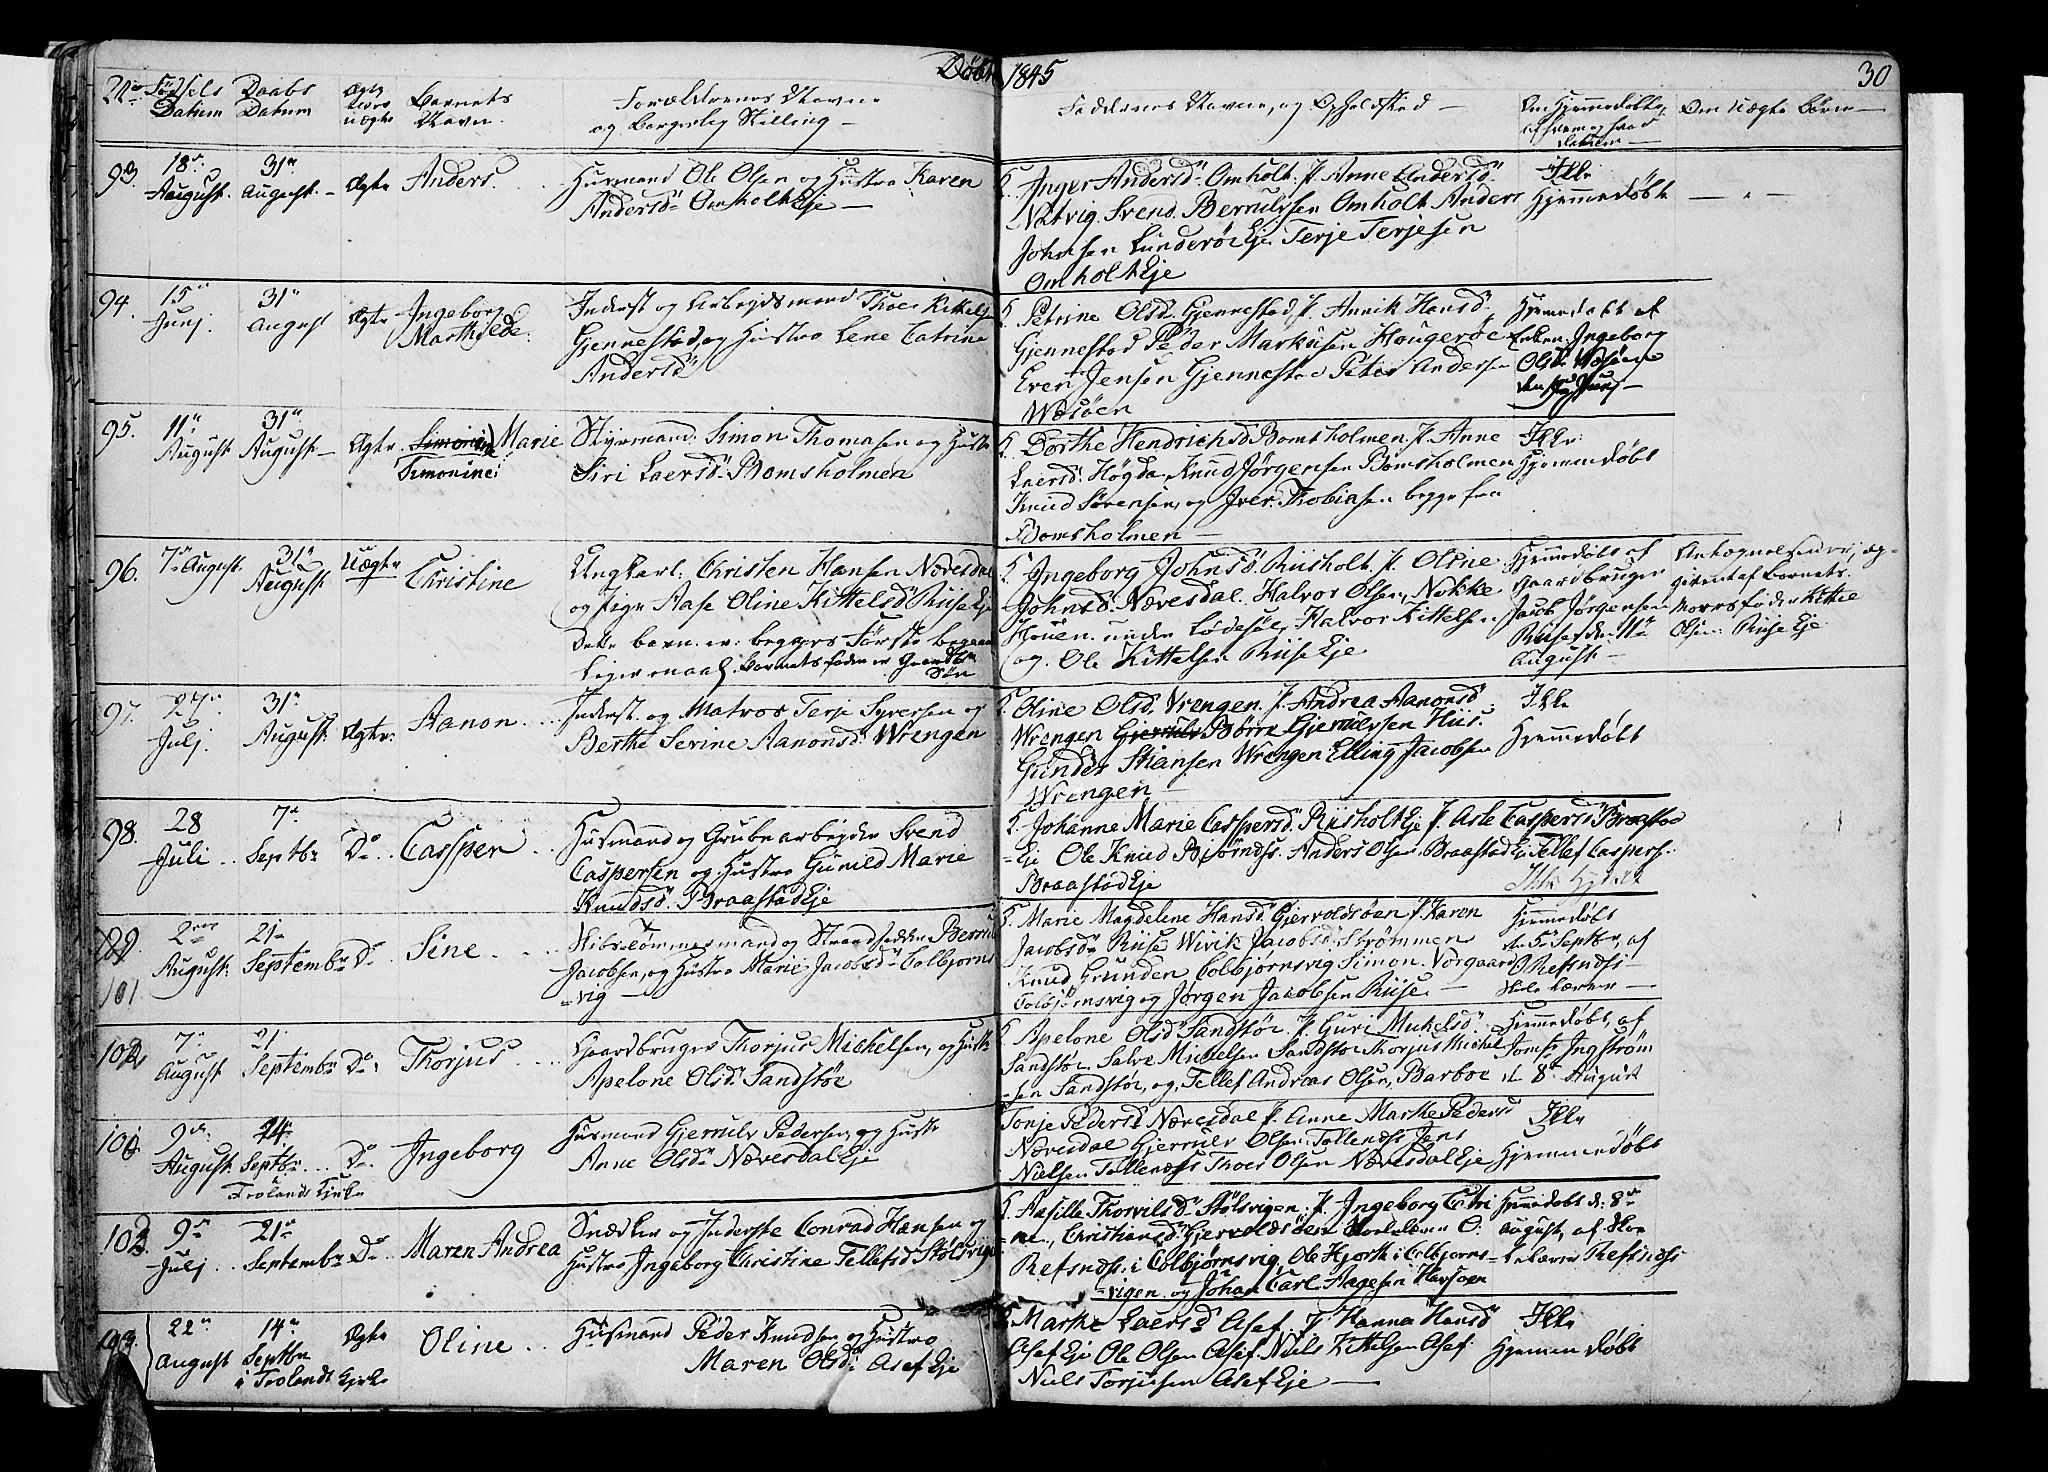 Døbte 1845 30
No Fødsels Datum Daabs Datum Ægte eller uægte Barnets Navn Forældrenes Navne og borgerlig Stilling
Faddernes Navne, og Opholdsted Om Hjemmedøbt, af hvem og hvad Datum Om uægte Børn
93. 18de August 31te August Ægte Anders
Husmand Ole Olsen og Hustru Karen
Andersd. Omholt Eje
Inger Andersd. Omholt. P. Anne Andersd.
Natvig. Svend Berrulvsen Omholt Anders
Johnsen Lunderöe Eje Terje Terjesen
Omholt Eje
Ikke
Hjemmedøbt
94. 15de Junj 31te August Ægte Ingeborg
Marthilde
Inderst og Arbejdsmand Thoer Kittels.
Gjennestad, og Hustru Lene Catrine
Andersd.
Petrine Olsd. Gjennestad, P. Annik Hansd.
Gjennestad Peder Markusen Hougeröe
Even Jensen Gjennestad Peter Andersen
Wasöen
Hjemmedøbt af
Enken Ingeborg
Olsd. Wasöen
95. 11te August 31te August Ægte Marie
Simonine
Styrmand Simon Thomasen og Hustru
Siri Laersd. Bomsholmen
Dorthe Hendrichsd. Bomsholmen. P. Anne
Laersd. Högda. Knud Jörgensen Bomsholmen
Knud Sörensen, og Iver Thobiasen begge fra
Bomsholmen
Ikke
Hjemmedøbt
96. 7de August 31te August Uægte Christine
Ungkarl Christen Hansen Nævesdal
og Pige Aase Oline Kittelsd. Riise Eje
Dette barn er begges Første begaaede
Lejermaal. barnets fader er Gaardbr.
Søn
Ingeborg Johnsd. Riisholt. P. Oline
Johnsd. Nævesdal. Halvor Olsen, Nokke
Houen under Lödesöl, Halvor Kittelsen
og Ole Kittelsen Riise Eje
Hjemmedøbt af
gaardbruger
Jacob Jörgensen
Riise den 11te
August
Antegnelsen er, og
givent af Barnets
Morsfader Kittel
Olsen Riise Eje
97. 27de Julj 31te August Ægte Aanon
Inderst og Matros Terje Syversen og
Berthe Serine Aanonsd. Wrengen
Oline Olsd. Vrengen. P. Andrea Aanonsd.
Wrengen Börre Gjerulvsen Hüs.
Gunder Stiansen Wrengen Elling Jacobsen
Wrengen
Ikke
Hjemmedøbt
98. 28 Juli 7de Septbr Do Caspper
Husmand og Grubearbejder Svend
Caspersen og Hustru Guneld Marie
Knudsd. Braastad Eje
Johanne Marie Casspersd. Riisholt Eje P. Asle Caspersd. Braastad
Eje Ole Knud Bjørnds. Anders Olsen Braastad Eje Tellef Caspers.
Braastad Eje
101 2den August 21de September Do Sine
Skibstömmermand og Strandsidder Berrul
Jacobsen, og Hustru Marie Jacobsd. Colbjørns-
vig
Marie Magdelene Hansd. Gjervoldsöen P. Karen
Jacobsd. Riise Wivik Jacobsd. Strömmen
Knud Grunden Colbjørnsvig Simon Vorgaard
Colbjörnsvig og Jörgen Jacobsen Riise
Hjemmedøbt
d. 5te Septbr, af
O Refsnds
Skolelærer
102 7de August 21 September Do Thorjus
Gaardbruger Thorjus Michelsen, og Hustr.
Apelone Olsd. Sandstöe
Apelone Olsd. Sandstöe P. Guri Mickelsd.
Sandstöe, Salve Mickelsen Sandstöe Thorjus Michel-
sen Sandstöe, og, Tellef Andreas Olsen, Barboe
Hjemmedøbt, af
Jomfr Ingström
d. 8de August
100 9de August 14 Septbr Do Ingeborg
Trolands Kirke
Husmand Gjerrulv Pedersen, og Hustr.
Anne Olsd. Nævesdal Eje
Tonje Pedersd. Nævesdal P. Anne Marthe Pedersd.
Nævesdal Gjerrulv Olsen Tellenæss Jens
Nielsen Tellenæss Thoer Olsen Nævesdal Eje
Ikke
Hjemmedøbt
103 9de Julj 21de September Do Maren Andrea
Snædker og Inderste Conrad Hansen og
Hustru Ingeborg Christine Tellefsd. Stölsvigen
Aasille Thorvilsd. Stölsvigen. P. Ingeborg Catri-
ne, Christiansd. Gjervoldsöen Skolelærer O.
Refsnds i Colbjørnsvig, Ole Hjorth i Colbjørns-
vigen og Johan Carl Aagesen Havsöen
Hjemmedøbt d. 8de
August, af Sko-
lelærer Refsnds
22de August 14de Septbr Ægte Oline
i Trolands Kirke
Husmand Peder Knudsen og Hustru
Maren Olsd. Asef Eje
Marthe Laersd. Asef. P. Hanna Hansd.
Asef Eje Ole Olsen Asef. Niels Kittelsen Asef.
Niels Torjusen Asef Eje
Ikke
Hjemmedøbt